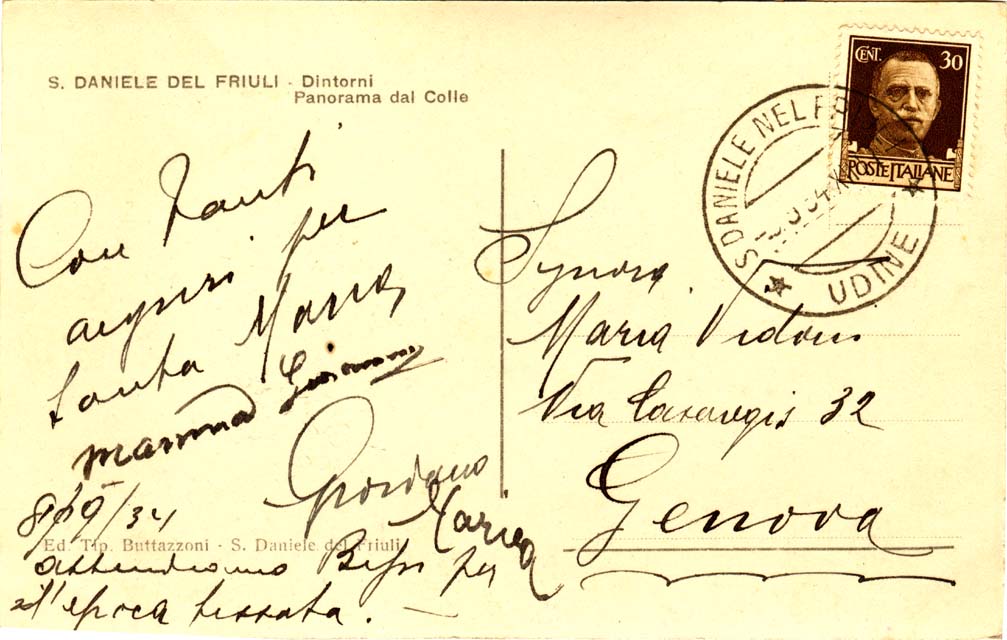 S. DANIELE DEL FRIULI - Dintorni
Panorama dal Colle
CENT. 30
POSTE ITALIANE
S. DANIELE NEL FR
UDINE
Con tanti
auguri per
Santa Maria
Giordano
Maria
/34
Ed. Tip. Buttazzoni - S. Daniele del Friuli
attendiamo per
l'epoca fissata.
Signora
Maria Vidoni
Via Casaregis 32
Genova